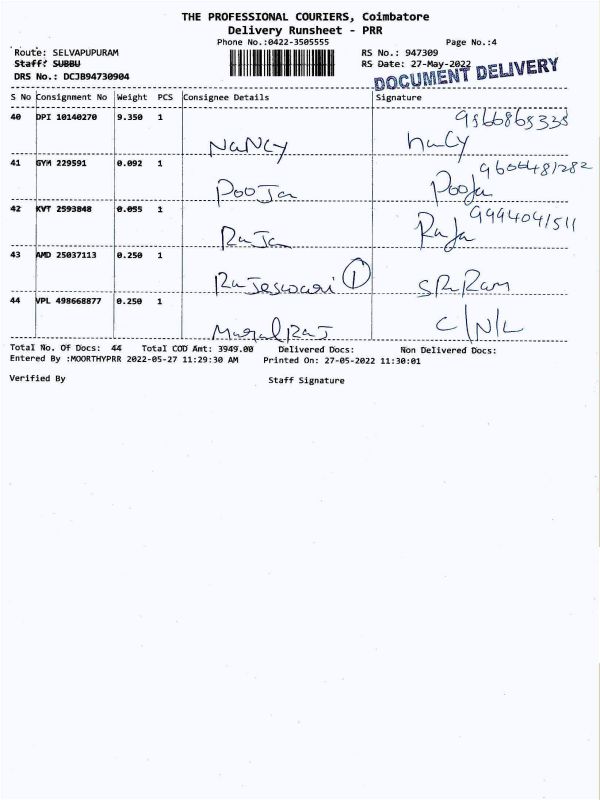 THE PROFESSIONAL COURIERS, Coimbatore
Delivery Runsheet - PRR
Phone No.:0422-3505555 Page No.:4
Route: SELVAPUPURAM RS No.: 947309
Staff: SUBBU RS Date: 27-May-2022
DOCUMENT DELIVERY
DRS No.: DCJB94730904
S No Consignment No Weight PCS Consignee Details Signature
40 DPI 10140270 9.350 1 9566865335
NaNCy NaCy
41 GYM 229591 0.092 1 9606481282
PooJa Pooja
42 KVT 2593848 0.055 1 9994041511
RaJa Raja
43 AMD 25037113 0.250 1
Rajeswari 1 SRRam
44 VPL 498668877 0.250 1 C/N/L
Total No. Of Docs: 44 Total COD Amt: 3949.00 Delivered Docs: Non Delivered Docs:
Entered By :MOORTHYPRR 2022-05-27 11:29:30 AM Printed On: 27-05-2022 11:30:01
Verified By Staff Signature